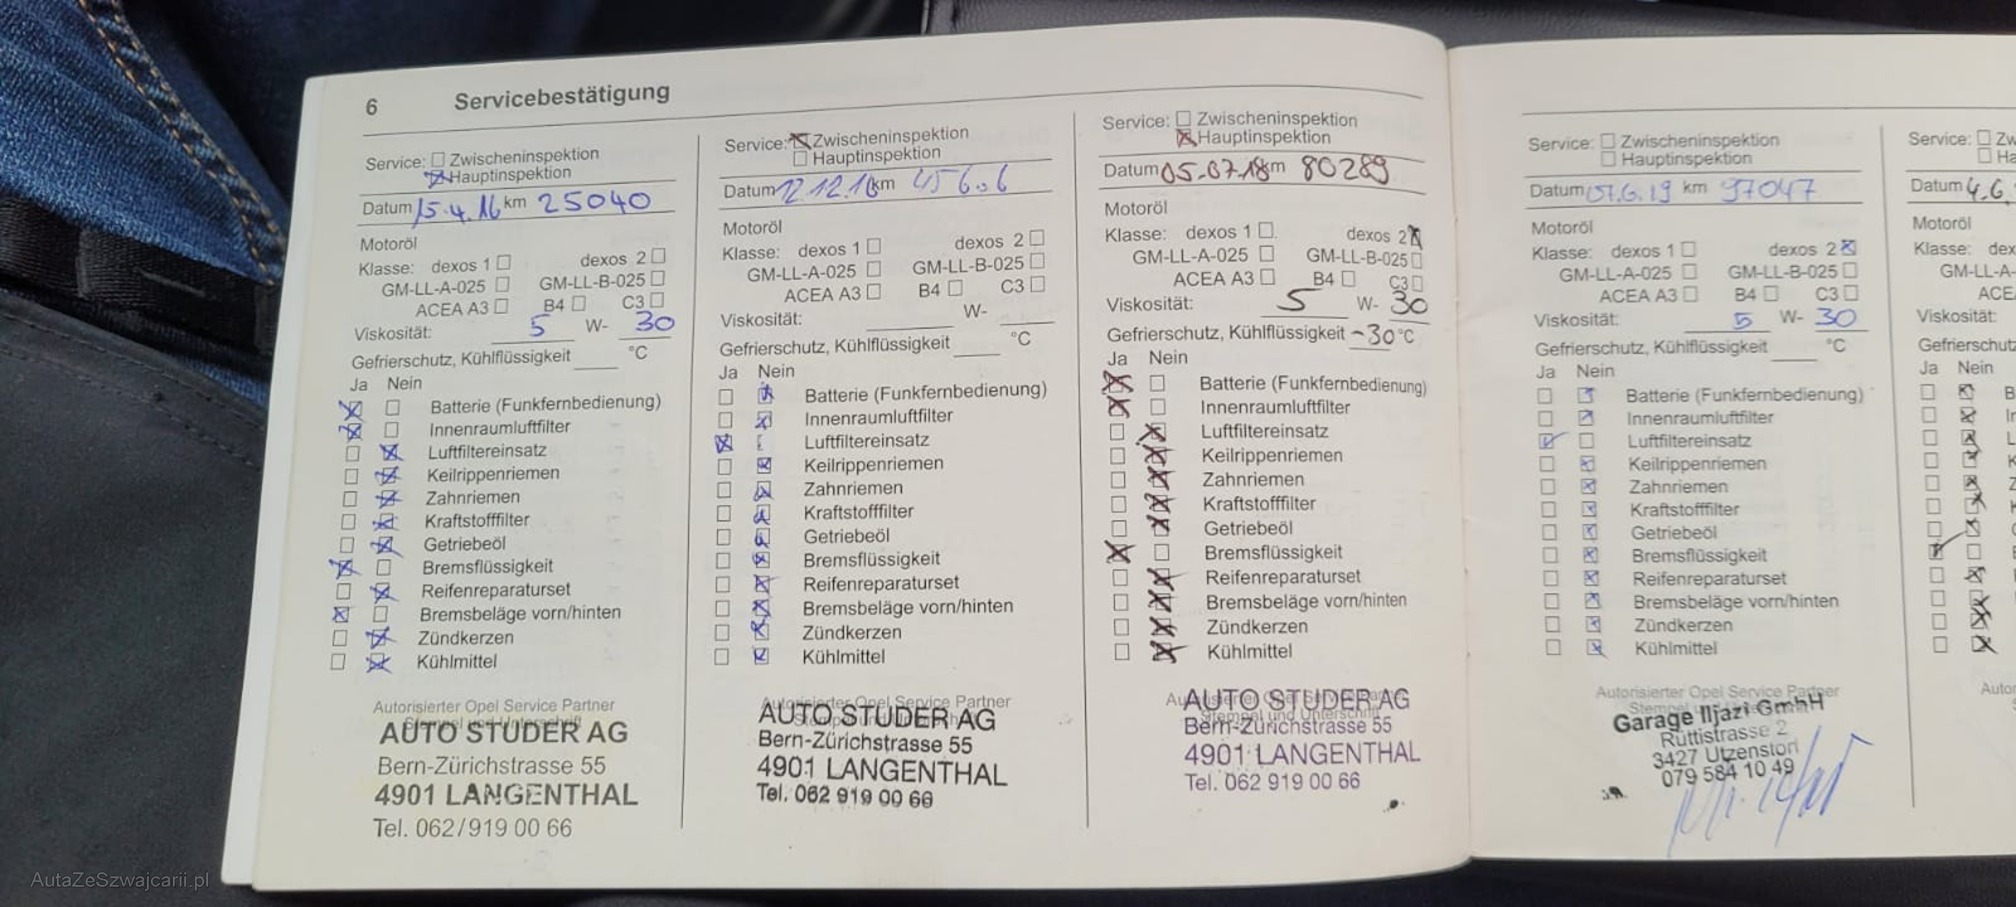 6 Servicebestätigung
Service: Zwischeninspektion
Hauptinspektion
Datum 15.4.16 km 25040
Motoröl
Klasse: dexos 1 dexos 2
GM-LL-A-025 GM-LL-B-025
ACEA A3 B4 C3
Viskosität: 5 W- 30
Gefrierschutz, Kühlflüssigkeit °C
Ja Nein
Batterie (Funkfernbedienung)
Innenraumluftfilter
Luftfiltereinsatz
Keilrippenriemen
Zahnriemen
Kraftstofffilter
Getriebeöl
Bremsflüssigkeit
Reifenreparaturset
Bremsbeläge vorn/hinten
Zündkerzen
Kühlmittel
Autorisierter Opel Service Partner
Stempel und Unterschrift
AUTO STUDER AG
Bern-Zürichstrasse 55
4901 LANGENTHAL
Tel. 062/919 00 66
Service: Zwischeninspektion
Hauptinspektion
Datum 12.12.16 km 45606
Motoröl
Klasse: dexos 1 dexos 2
GM-LL-A-025 GM-LL-B-025
ACEA A3 B4 C3
Viskosität: W-
Gefrierschutz, Kühlflüssigkeit °C
Ja Nein
Batterie (Funkfernbedienung)
Innenraumluftfilter
Luftfiltereinsatz
Keilrippenriemen
Zahnriemen
Kraftstofffilter
Getriebeöl
Bremsflüssigkeit
Reifenreparaturset
Bremsbeläge vorn/hinten
Zündkerzen
Kühlmittel
Autorisierter Opel Service Partner
AUTO STUDER AG
Bern-Zürichstrasse 55
4901 LANGENTHAL
Tel. 062 919 00 66
Service: Zwischeninspektion
Hauptinspektion
Datum 05.07.18 km 80289
Motoröl
Klasse: dexos 1 dexos 2
GM-LL-A-025 GM-LL-B-025
ACEA A3 B4 C3
Viskosität: 5 W- 30
Gefrierschutz, Kühlflüssigkeit -30 °C
Ja Nein
Batterie (Funkfernbedienung)
Innenraumluftfilter
Luftfiltereinsatz
Keilrippenriemen
Zahnriemen
Kraftstofffilter
Getriebeöl
Bremsflüssigkeit
Reifenreparaturset
Bremsbeläge vorn/hinten
Zündkerzen
Kühlmittel
AUTO STUDER AG
Stempel und Unterschrift
Bern-Zürichstrasse 55
4901 LANGENTHAL
Tel. 062 919 00 66
Service: Zwischeninspektion
Hauptinspektion
Datum 07.6.19 km 97047
Motoröl
Klasse: dexos 1 dexos 2
GM-LL-A-025 GM-LL-B-025
ACEA A3 B4 C3
Viskosität: 5 W- 30
Gefrierschutz, Kühlflüssigkeit °C
Ja Nein
Batterie (Funkfernbedienung)
Innenraumluftfilter
Luftfiltereinsatz
Keilrippenriemen
Zahnriemen
Kraftstofffilter
Getriebeöl
Bremsflüssigkeit
Reifenreparaturset
Bremsbeläge vorn/hinten
Zündkerzen
Kühlmittel
Autorisierter Opel Service Partner
Garage Iljazi GmbH
Rüttistrasse 2
3427 Utzenstorf
079 584 10 49
Service: Zw
Ha
Datum 4.6.
Motoröl
Klasse: dex
GM-LL-A-
ACE
Viskosität:
Gefrierschutz
Ja Nein
B
In
L
K
Z
K
Auto
AutaZeSzwajcarii.pl